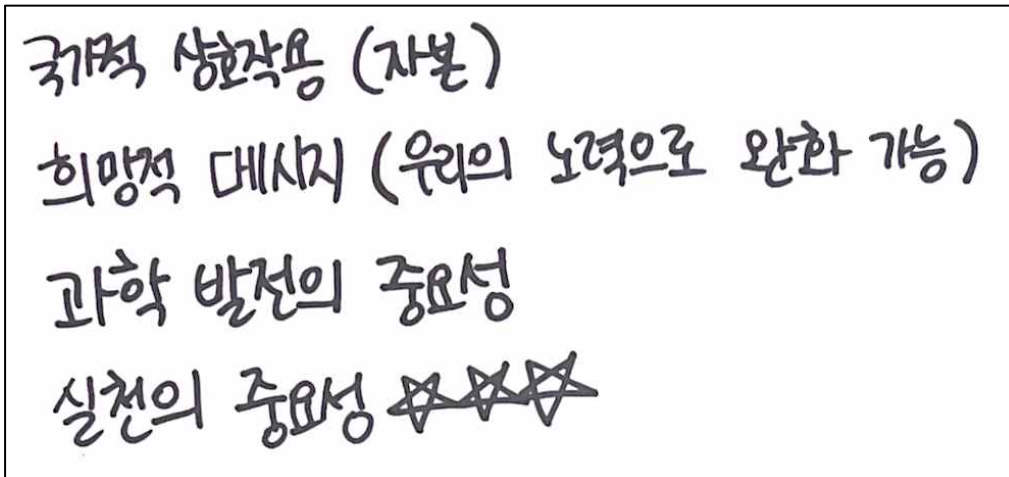 국가적 상호작용 (자본)
희망적 메시지 (우리의 노력으로 완화 가능)
과학 발전의 중요성
실천의 중요성 ☆☆☆